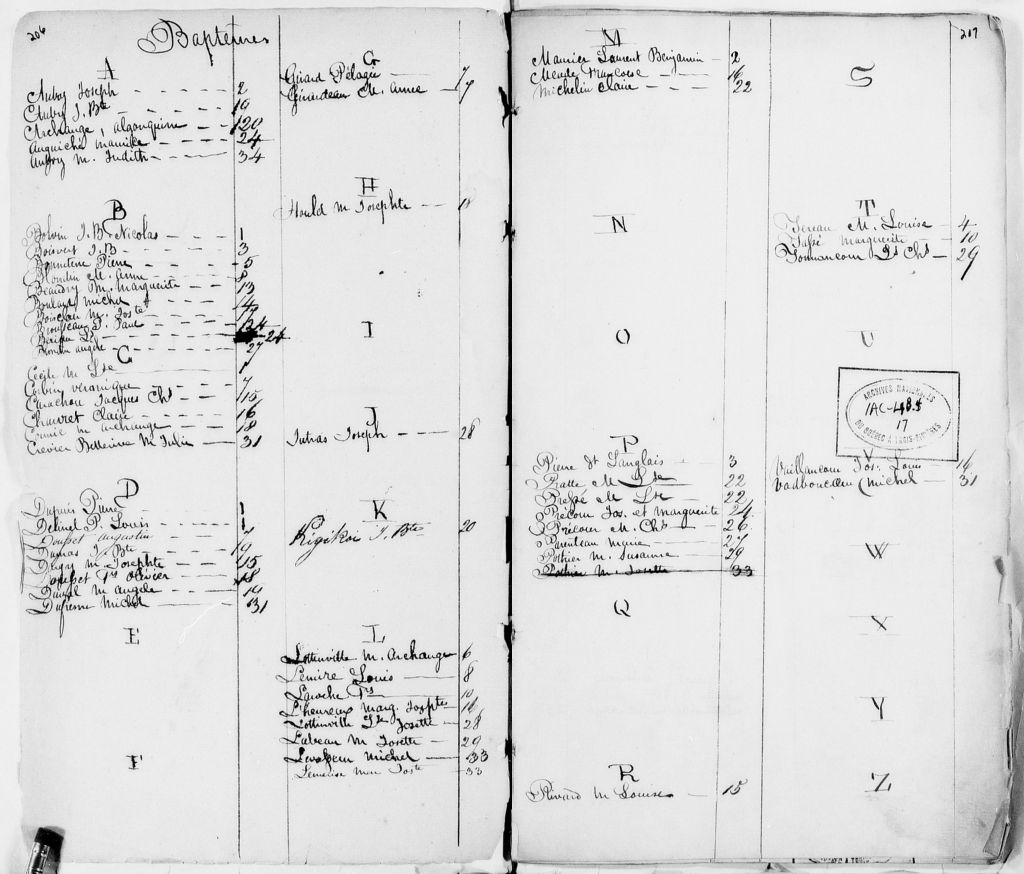 206
Baptemes
A
Aubry Joseph 2
Aubry J. Bte 19
Archange, algonquine 120
Auguiché Manike 24
Aubry M. Judith 34
B
Bolvin J. B. Nicolas 1
Boisvert J. B. 3
Pierre 5
Blondin M. Anne 8
Beaudry M. Marguerite 13
Boulard Michel 14
Boisclau M. Joste
Brousseau J. Paul 24
24
Blondin angele 27
C
Cecile M Lse 1
Corbin veronique 7
Jacques Chs 15
Chauvret Claire 16
M. archange 18
Crevier Bellerive M Julie 31
D
Dupuis Pierre 1
P. Louis 1
Dousset augustin
Dumas J Bte 19
Dugay M. Josephte 15
Dousset Frs Olivier 18
M Angele 19
Dufresne Michel 31
E
F
G
Girard Pélagie 7
Girardeau M. Anne 17
H
Hould M Josephte 18
I
J
Jutras Joseph 28
K
Kigikoi J. Bte 20
L
Lottinville M. Archange 6
Lemire Louis 8
Laroche Frs 10
L'heureux Marg. Josphte 16
Lottinville Lse Josette 28
Labeau M Josette 29
Levasseur Michel 33
Lemerise Mie Joste 33
217
M
Maurier Laurent Benjamin 2
Mende Françoise 16
Michelin Claire 22
N
O
P
Pierre dt Langlais 3
Pratte M Lse 22
M Lse 22
Precour Jos. et Marguerite 24
Précour M. Chs 26
Parenteau Marie 27
Pothier M. Susanne 29
Pothier M. Josette 33
Q
R
Rivard M Louise 15
S
T
Tereau M. Louise 4
Tassé Marguerite 10
Tonnancour Ls Chs 29
U
ARCHIVES NATIONALES
1AC-L48.5
17
DU QUÉBEC À TROIS-RIVIÈRES
V
Vaillancour Jos. Louis 16
Vadboncoeur Michel 31
W
X
Y
Z